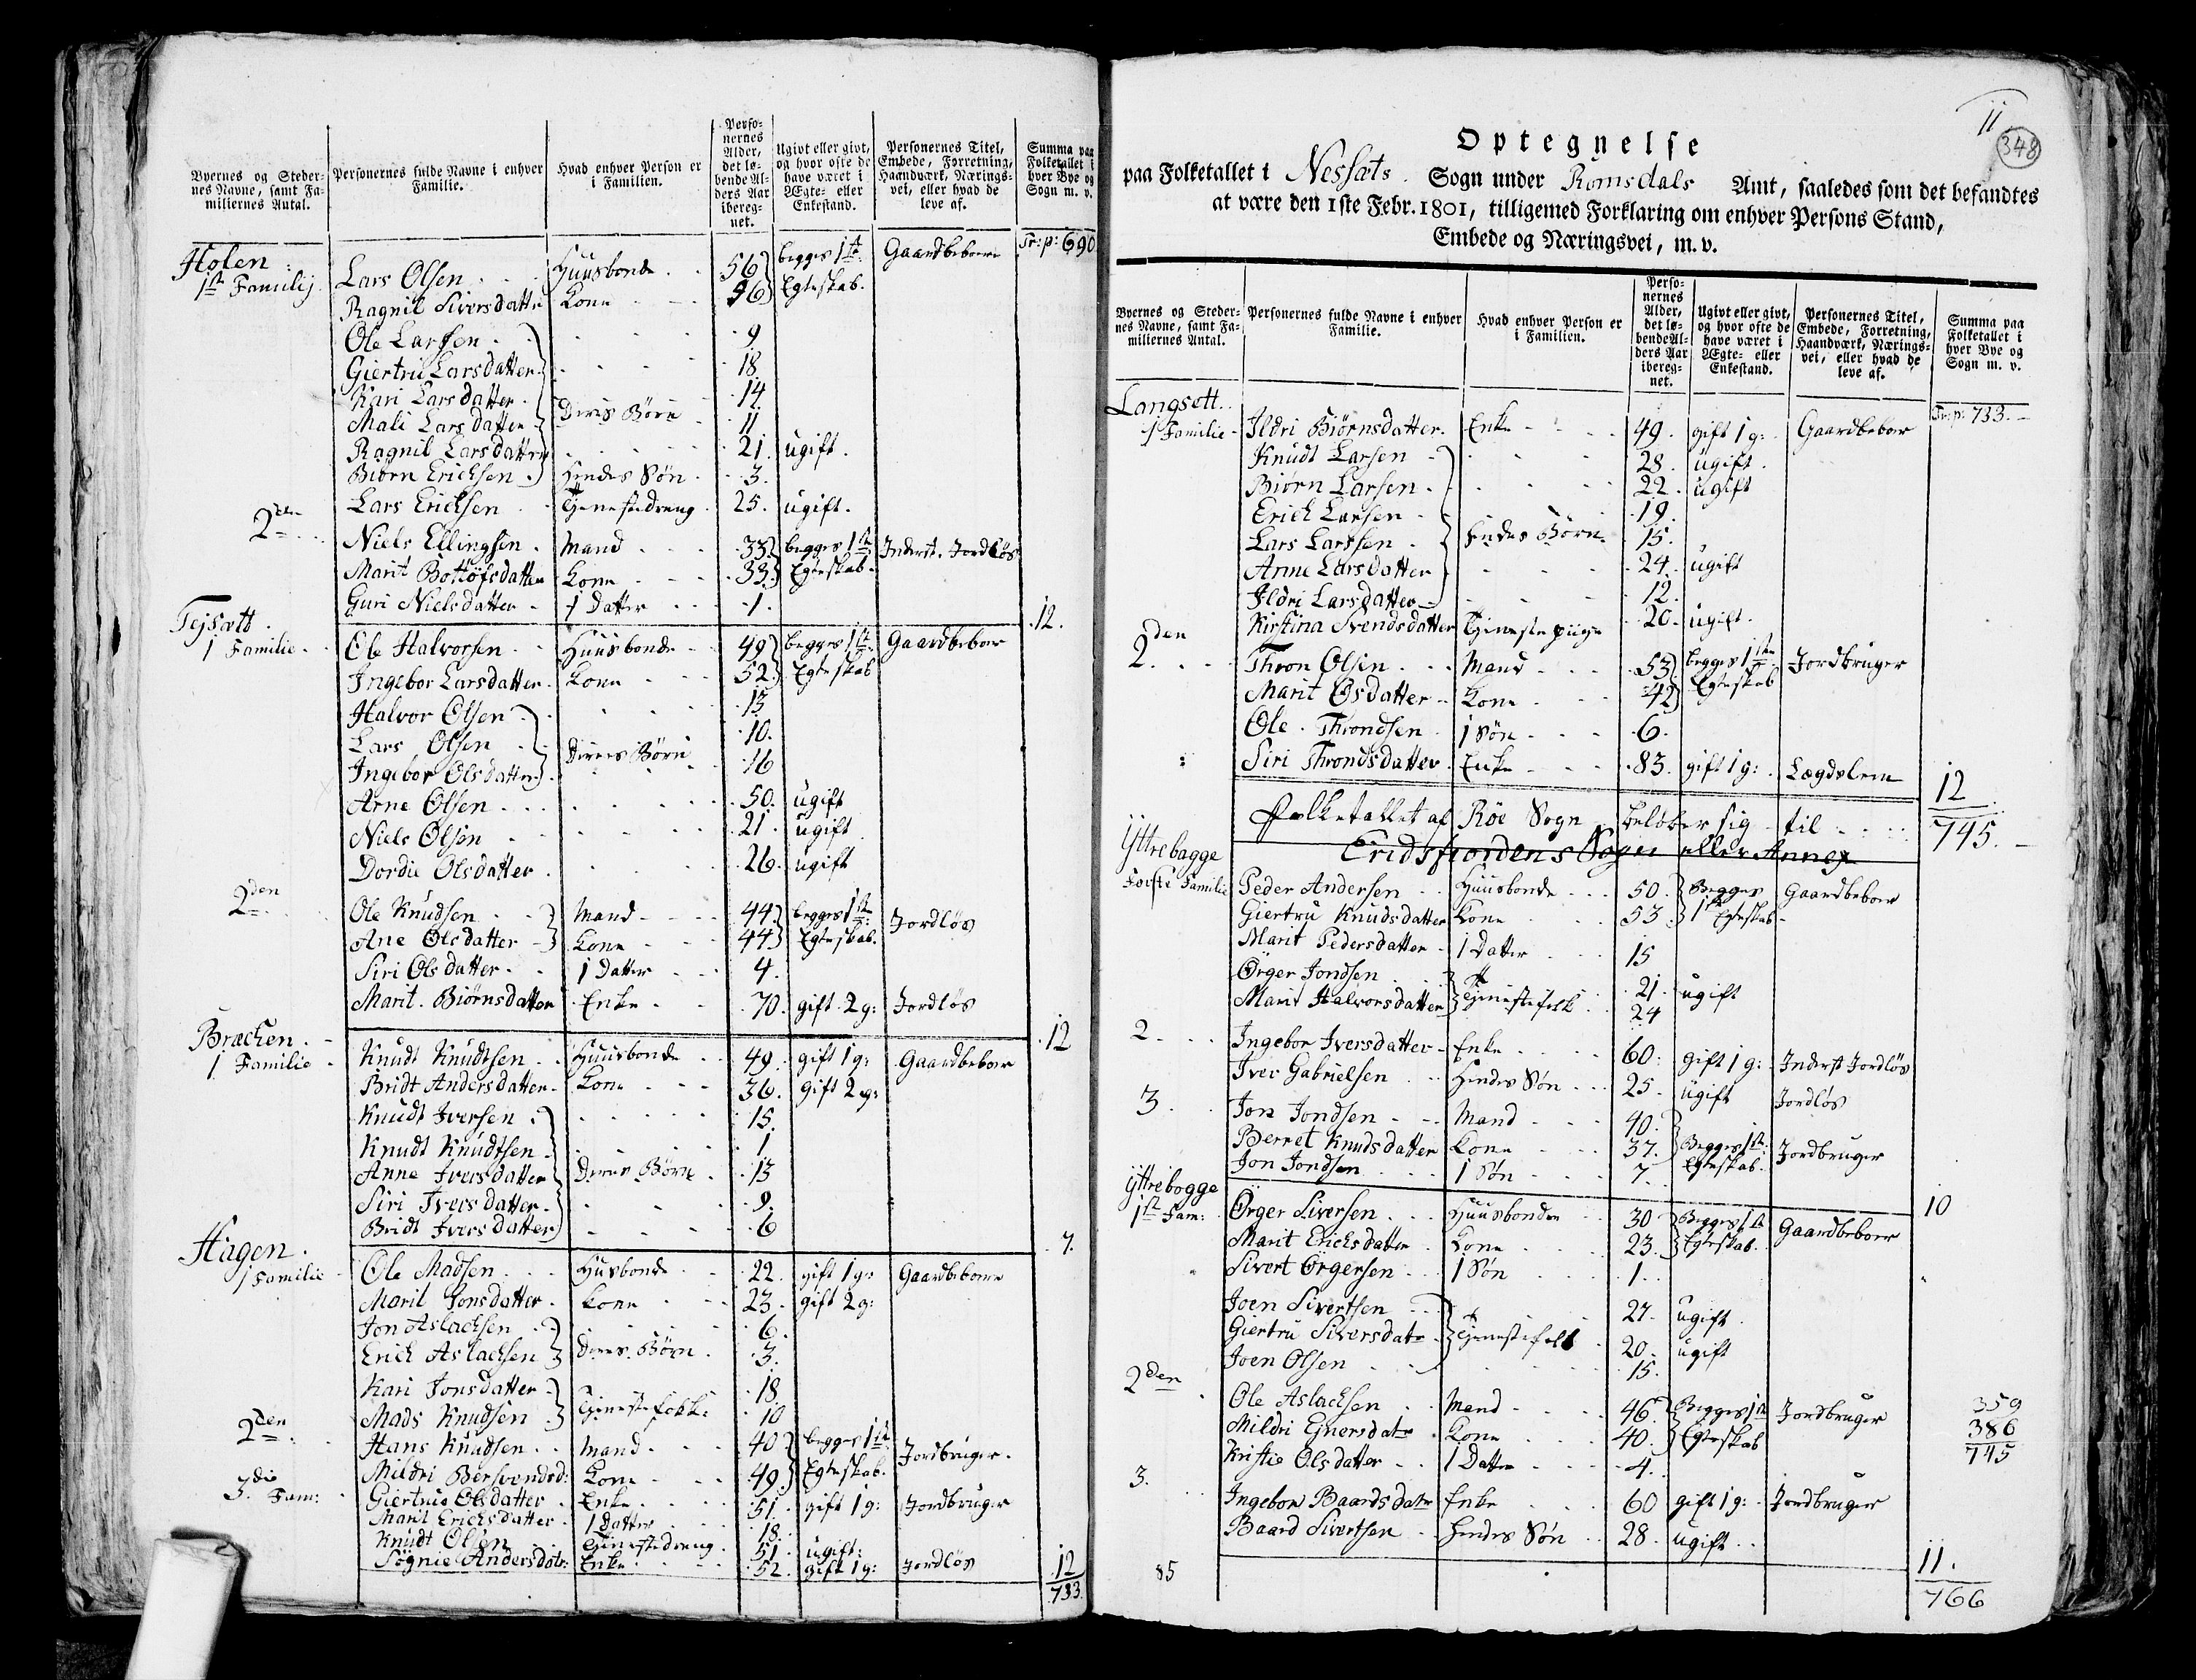 Byernes og Steder-
nes Navne, samt Fa-
miliernes Antal.
Personernes fulde Navne i enhver
Familie.
Hvad enhver Person er
i Familien.
Perso-
nernes
Alder,
det lø-
bende Al-
ders Aar
ibereg-
net.
Ugivt eller givt,
og hvor ofte de
have været i
Ægte- eller
Enkestand.
Personernes Titel,
Embede, Forretning,
Haandværk, Nærings-
vei, eller hvad de
leve af.
Summa paa
Folketallet i
hver Bye og
Sogn m. v.
Tr: p: 690
Holen
1ste Familij. Lars Olsen Huusbonde 56 begges 1ste Gaardbeboere
Ragnil Siversdatter Kone 56 Egteskab.
Ole Larssen 9
Giertru Larsdatter 18.
Kari Larsdatter 14
Mali Larsdatter Deres Børn 11
Ragnil Larsdatter 21. ugift.
Biørn Ericksen Hendes Søn 3.
Lars Ericksen Tjenestedreng 25. ugift.
2den Niels Ellingsen Mand 33. begges 1ste Inderst. Jordløs
Marit Bottolfsdatter Kone 33. Egteskab.
Guri Nielsdatter 1 Datter 1.
12.
Tejsætt.
1 Familie Ole Halvorsen Huusbonde 49 begges 1ste Gaardbeboer
Ingebor Larsdatter Kone 52. Egteskab
Halvor Olsen 13
Lars Olsen Deres Børn 10.
Ingebor Olsdatter 16
Arne Olsen 50. ugift
Niels Olsen 21. ugift
Dordie Olsdatter 26. ugift
2den Ole Knudsen Mand 44. begges 1ste Jordløs
Ane Olsdatter Kone 44 Egteskab.
Siri Olsdatter 1 Datter 4.
Marit Biørnsdatter Enke 70. gift 2 g: Jordløs
12
Bræcken
1 Familie Knudt Knudtsen Huusbonde 49. gift 1 g: Gaardbeboer
Bridt Andersdatter Kone 36. gift 2 g:
Knudt Iversen 15.
Knudt Knudtsen 1
Anne Iversdatter Deres Børn 13
Siri Iversdatter 9.
Bridt Iversdatter 6
7.
Hagen
1 Familie Ole Madsen Husbonde 22. gift 1 g: Gaardbeboere
Marit Jonsdatter Kone 23. gift 2 g:
Jon Aslacksen 6.
Erich Aslachsen Deres Børn 3.
Kari Jonsdatter 18.
Mads Knudsen Tjenestefolk: 10
2den Hans Knudsen Mand 40 begges 1ste Jordbruger.
Mildri Bersvendsd: Kone 49. Egteskab.
3die Fam: Giertrue Olsdatter Enke 51. gift 1 g: Jordbruger
Marit Ericksdatter 1 Datter 18.
Knudt Olsen Tjenestedreng 51. ugift:
Søgnie Andersdatr: Enke 52. gift 1 g: Jordløs
12
733.
11
348
Optegnelse
paa Folketallet i Nessæts Sogn under Romsdals Amt, saaledes som det befandtes
at være den 1ste Febr. 1801, tilligemed Forklaring om enhver Persons Stand,
Embede og Næringsvei, m. v.
Byernes og Steder-
nes Navne, samt Fa-
miliernes Antal.
Personernes fulde Navne i enhver
Familie.
Hvad enhver Person er
i Familien.
Perso-
nernes
Alder,
det lø-
bende Al-
ders Aar
ibereg-
net.
Ugivt eller givt,
og hvor ofte de
have været i
Ægte- eller
Enkestand.
Personernes Titel,
Embede, Forretning,
Haandværk, Nærings-
vei, eller hvad de
leve af.
Summa paa
Folketallet i
hver Bye og
Sogn m. v.
Tr: p: 733.
Langsett
1 Familie Ildri Biørnsdatter. Enke 49. gift 1 g: Gaardbeboer
Knudt Larsen 28. ugift.
Biørn Larsen 22. ugift
Erich Larsen 19.
Lars Larssen Hendes Børn 15.
Anne Larsdatter 24. ugift
Ildri Larsdatter 12.
Kirstina Svendsdatter Tjenestepiige 20. ugift.
2den Thron Olsen Mand 53 begges 1ste Jordbruger
Marit Osdatter Kone 42 Egteskab
Ole Throndsen 1 Søn 6.
Siri Throndsdatter Enke 83. gift 1 g: Lægdslem
12
Folketallet af Röe Sogn beløber sig til 745.
Eridsfjordens Sogn eller Annex
Yttrebagge
Første Familie Peder Andersen Huusbonde 50. Begges Gaardbeboer
Giertru Knudsdatter Kone 53 1ste Egteskab
Marit Pedersdatter 1 Datter 15
Örger Jondsen Tjenestefolk 21. ugift
Marit Halvorsdatter 24
2 Ingebor Iversdatter Enke 60. gift 1 g: Inderst Jordløs
Iver Gabrielsen Hendes Søn 25. ugift Jordløs
3. Jon Jondsen Mand 40. Begges 1ste
Berret Knudsdatter Kone 37. Egteskab. Jordbruger
Jon Jondsen 1 Søn 7.
10
Yttrebogge
1ste Fam: Örger Siversen Huusbonde 30 Begges 1ste Gaardbeboer
Marit Ericksdatter Kone 23. Egteskab.
Sivert Örgersen 1 Søn 1.
Joen Sivertsen 27. ugift.
Giertru Siversdatr Tjenestefolk 20. ugift
Joen Olsen 15.
2den Ole Aslachsen Mand 46. Begges 1ste Jordbruger
Mildri Ejnersdatr Kone 40. Egteskab
Kristie Olsdatter 1 Datter 4.
3. Ingebor Baardsdatr Enke 60 gift 1 g: Jordbruger
Baard Sivertsen Hendes Søn 28. ugift
359
386
745
11.
766
85